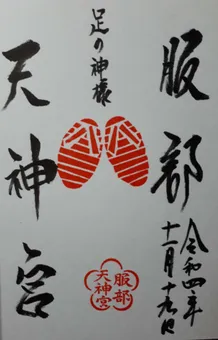 足の神様
服部
天神宮
令和四年
十一月十九日
服部
天神宮